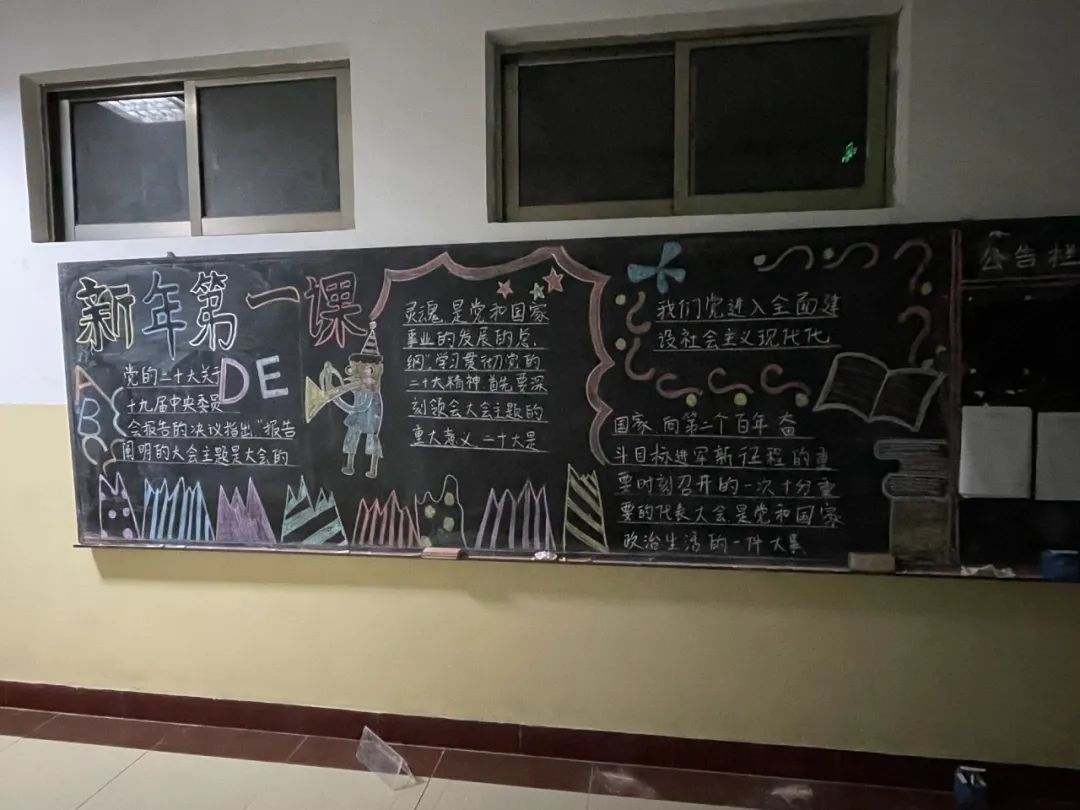 新年第一课
ABC
DE
党的二十大关于
十九届中央委员
会报告的决议指出"报告
阐明的大会主题是大会的
灵魂,是党和国家
事业的发展的总
纲",学习贯彻党的
二十大精神首先要深
刻领会大会主题的
重大意义 二十大是
我们党进入全面建
设社会主义现代化
国家 向第二个百年奋
斗目标进军新征程的重
要时刻召开的一次十分重
要的代表大会是党和国家
政治生活的一件大事
公告栏